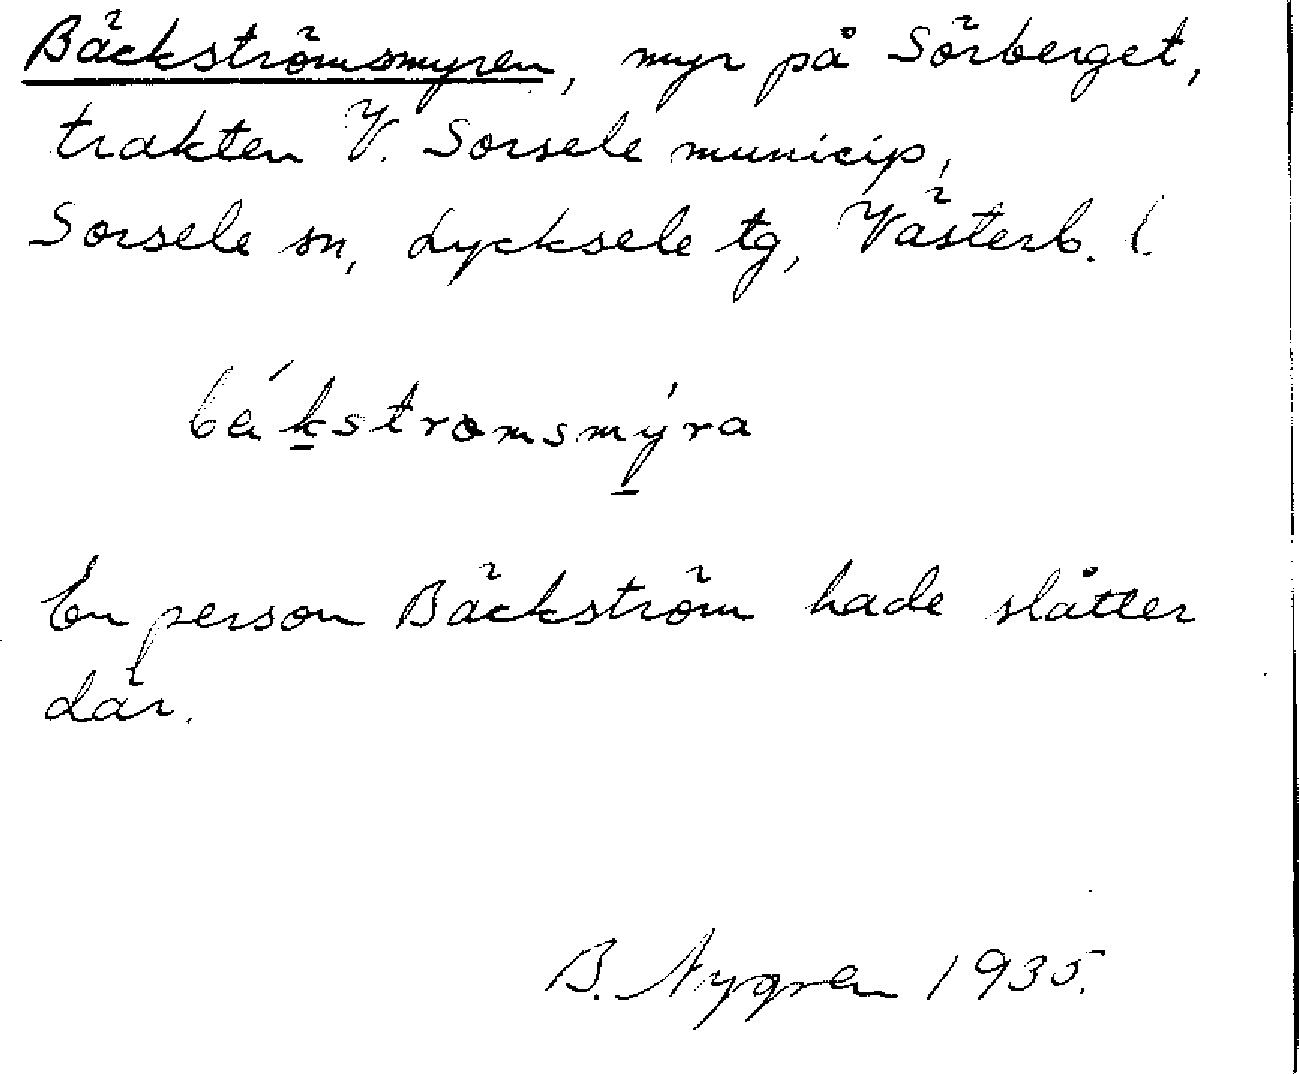 Bäckströmsmyren, myr på Sörberget,
trakten V. Sorsele municip,
Sorsele sn, Lycksele tg, Västerb. l.
bákstromsmýra
En person Bäckström hade slåtter
där.
B. Nygren 1935.